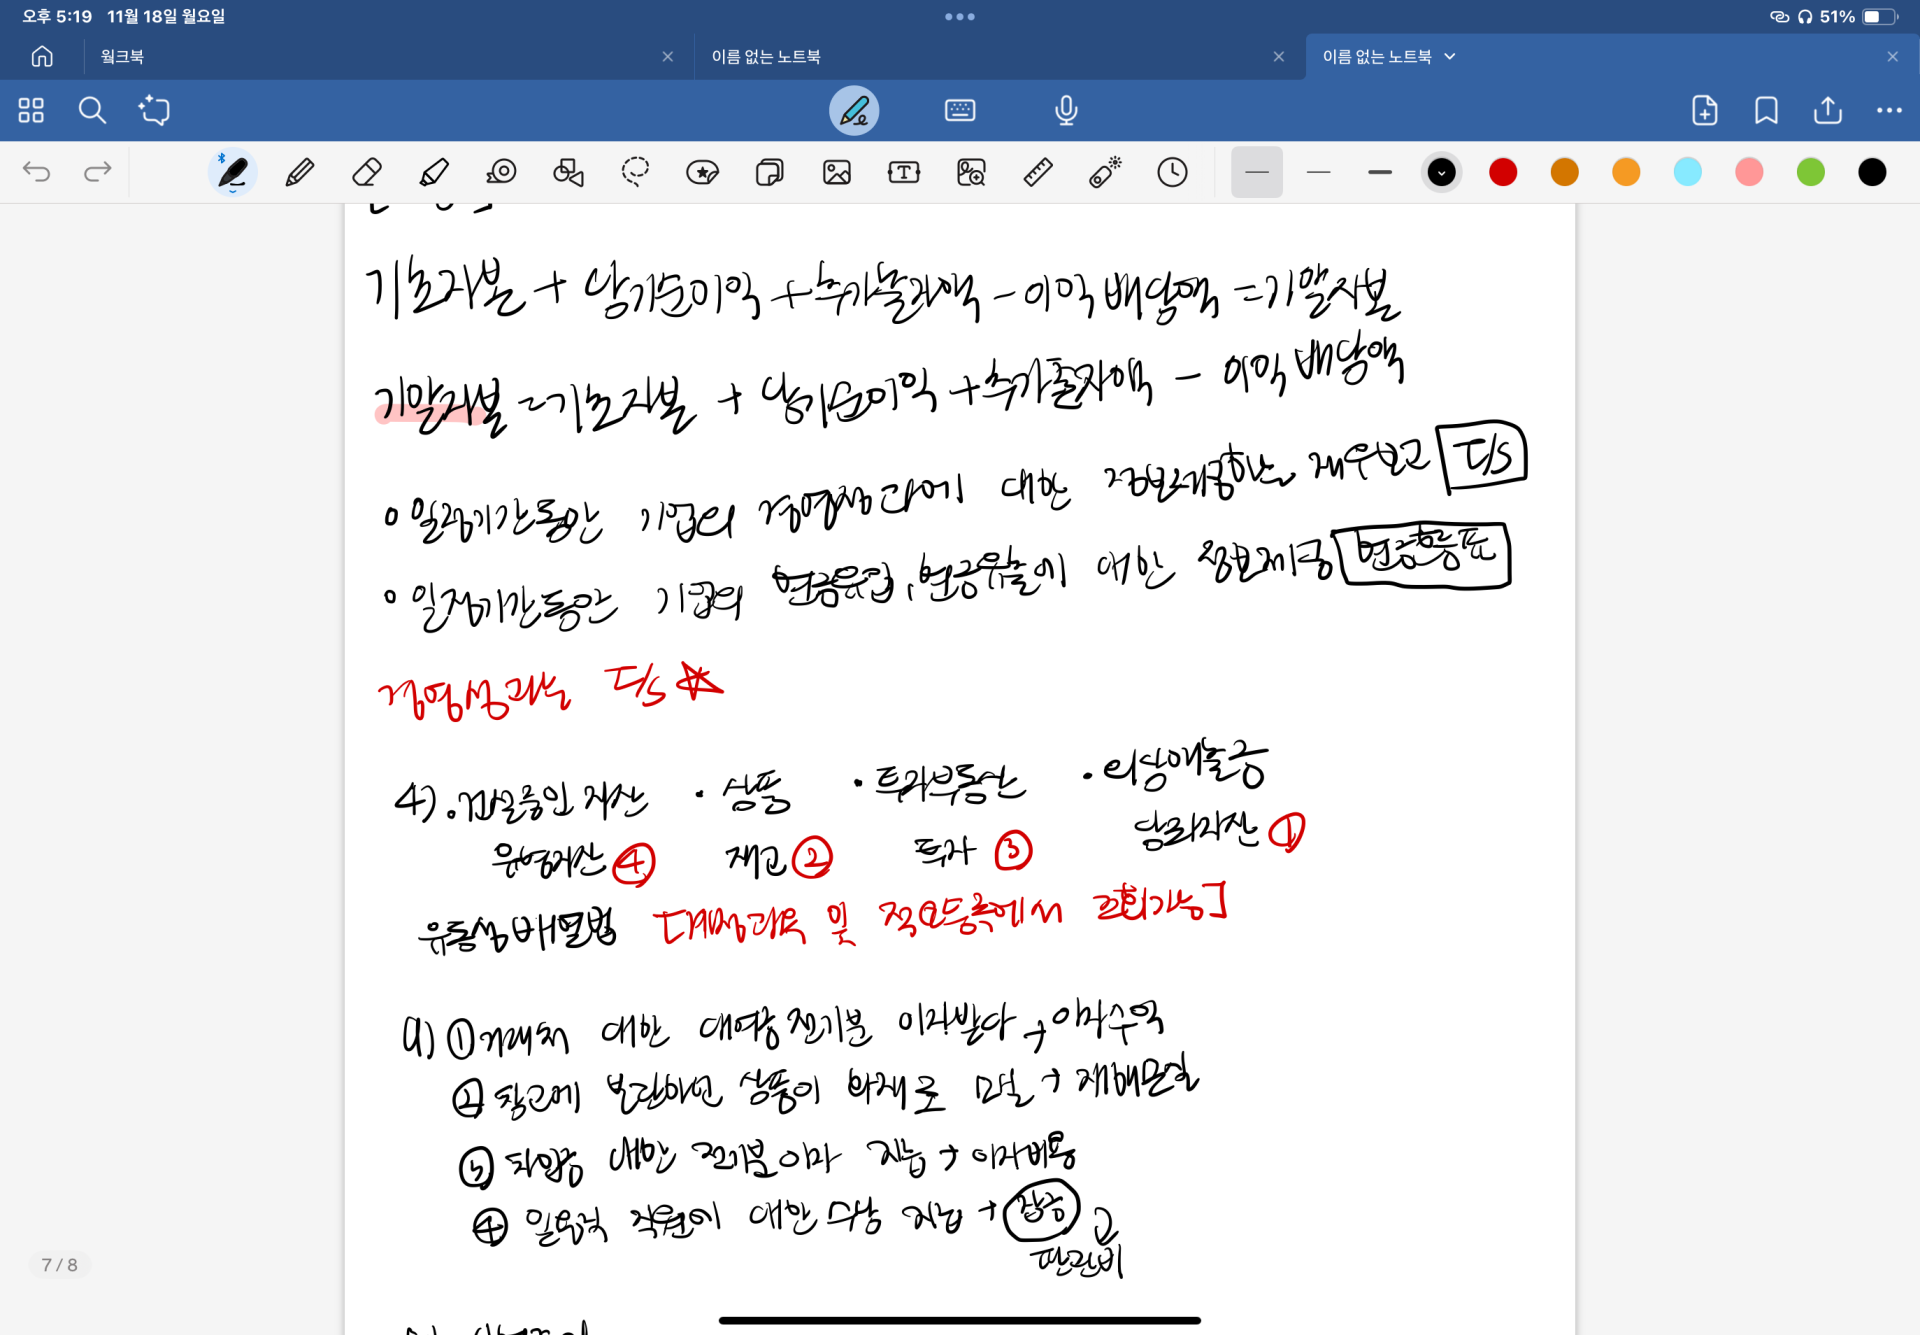 오후 5:19 11월 18일 월요일
51%
웤크북
이름 없는 노트북
이름 없는 노트북
기초자본 + 당기순이익 + 추가출자액 - 이익배당액 = 기말자본
기말자본 = 기초자본 + 당기순이익 + 추가출자액 - 이익배당액
• 일정기간동안 기업의 경영성과에 대한 정보제공하는 재무보고 I/S
• 일정기간동안 기업의 현금유입, 현금유출에 대한 정보제공 현금흐름표
경영성과는 I/S ☆
4) • 건설중인 자산 • 상품 • 투자부동산 • 외상매출금
유형자산 ④ 재고 ② 투자 ③ 당좌자산 ①
유동성배열법 [계정과목 및 적요등록에서 조회가능]
9) ① 거래처 대한 대여금 전기분 이자받다 → 이자수익
② 창고에 보관하던 상품이 화재로 → 재해손실
③ 차입금 대한 전기분이자 지급 → 이자비용
④ 일용직 직원에 대한 수당 지급 → 잡급
판관비
7 / 8